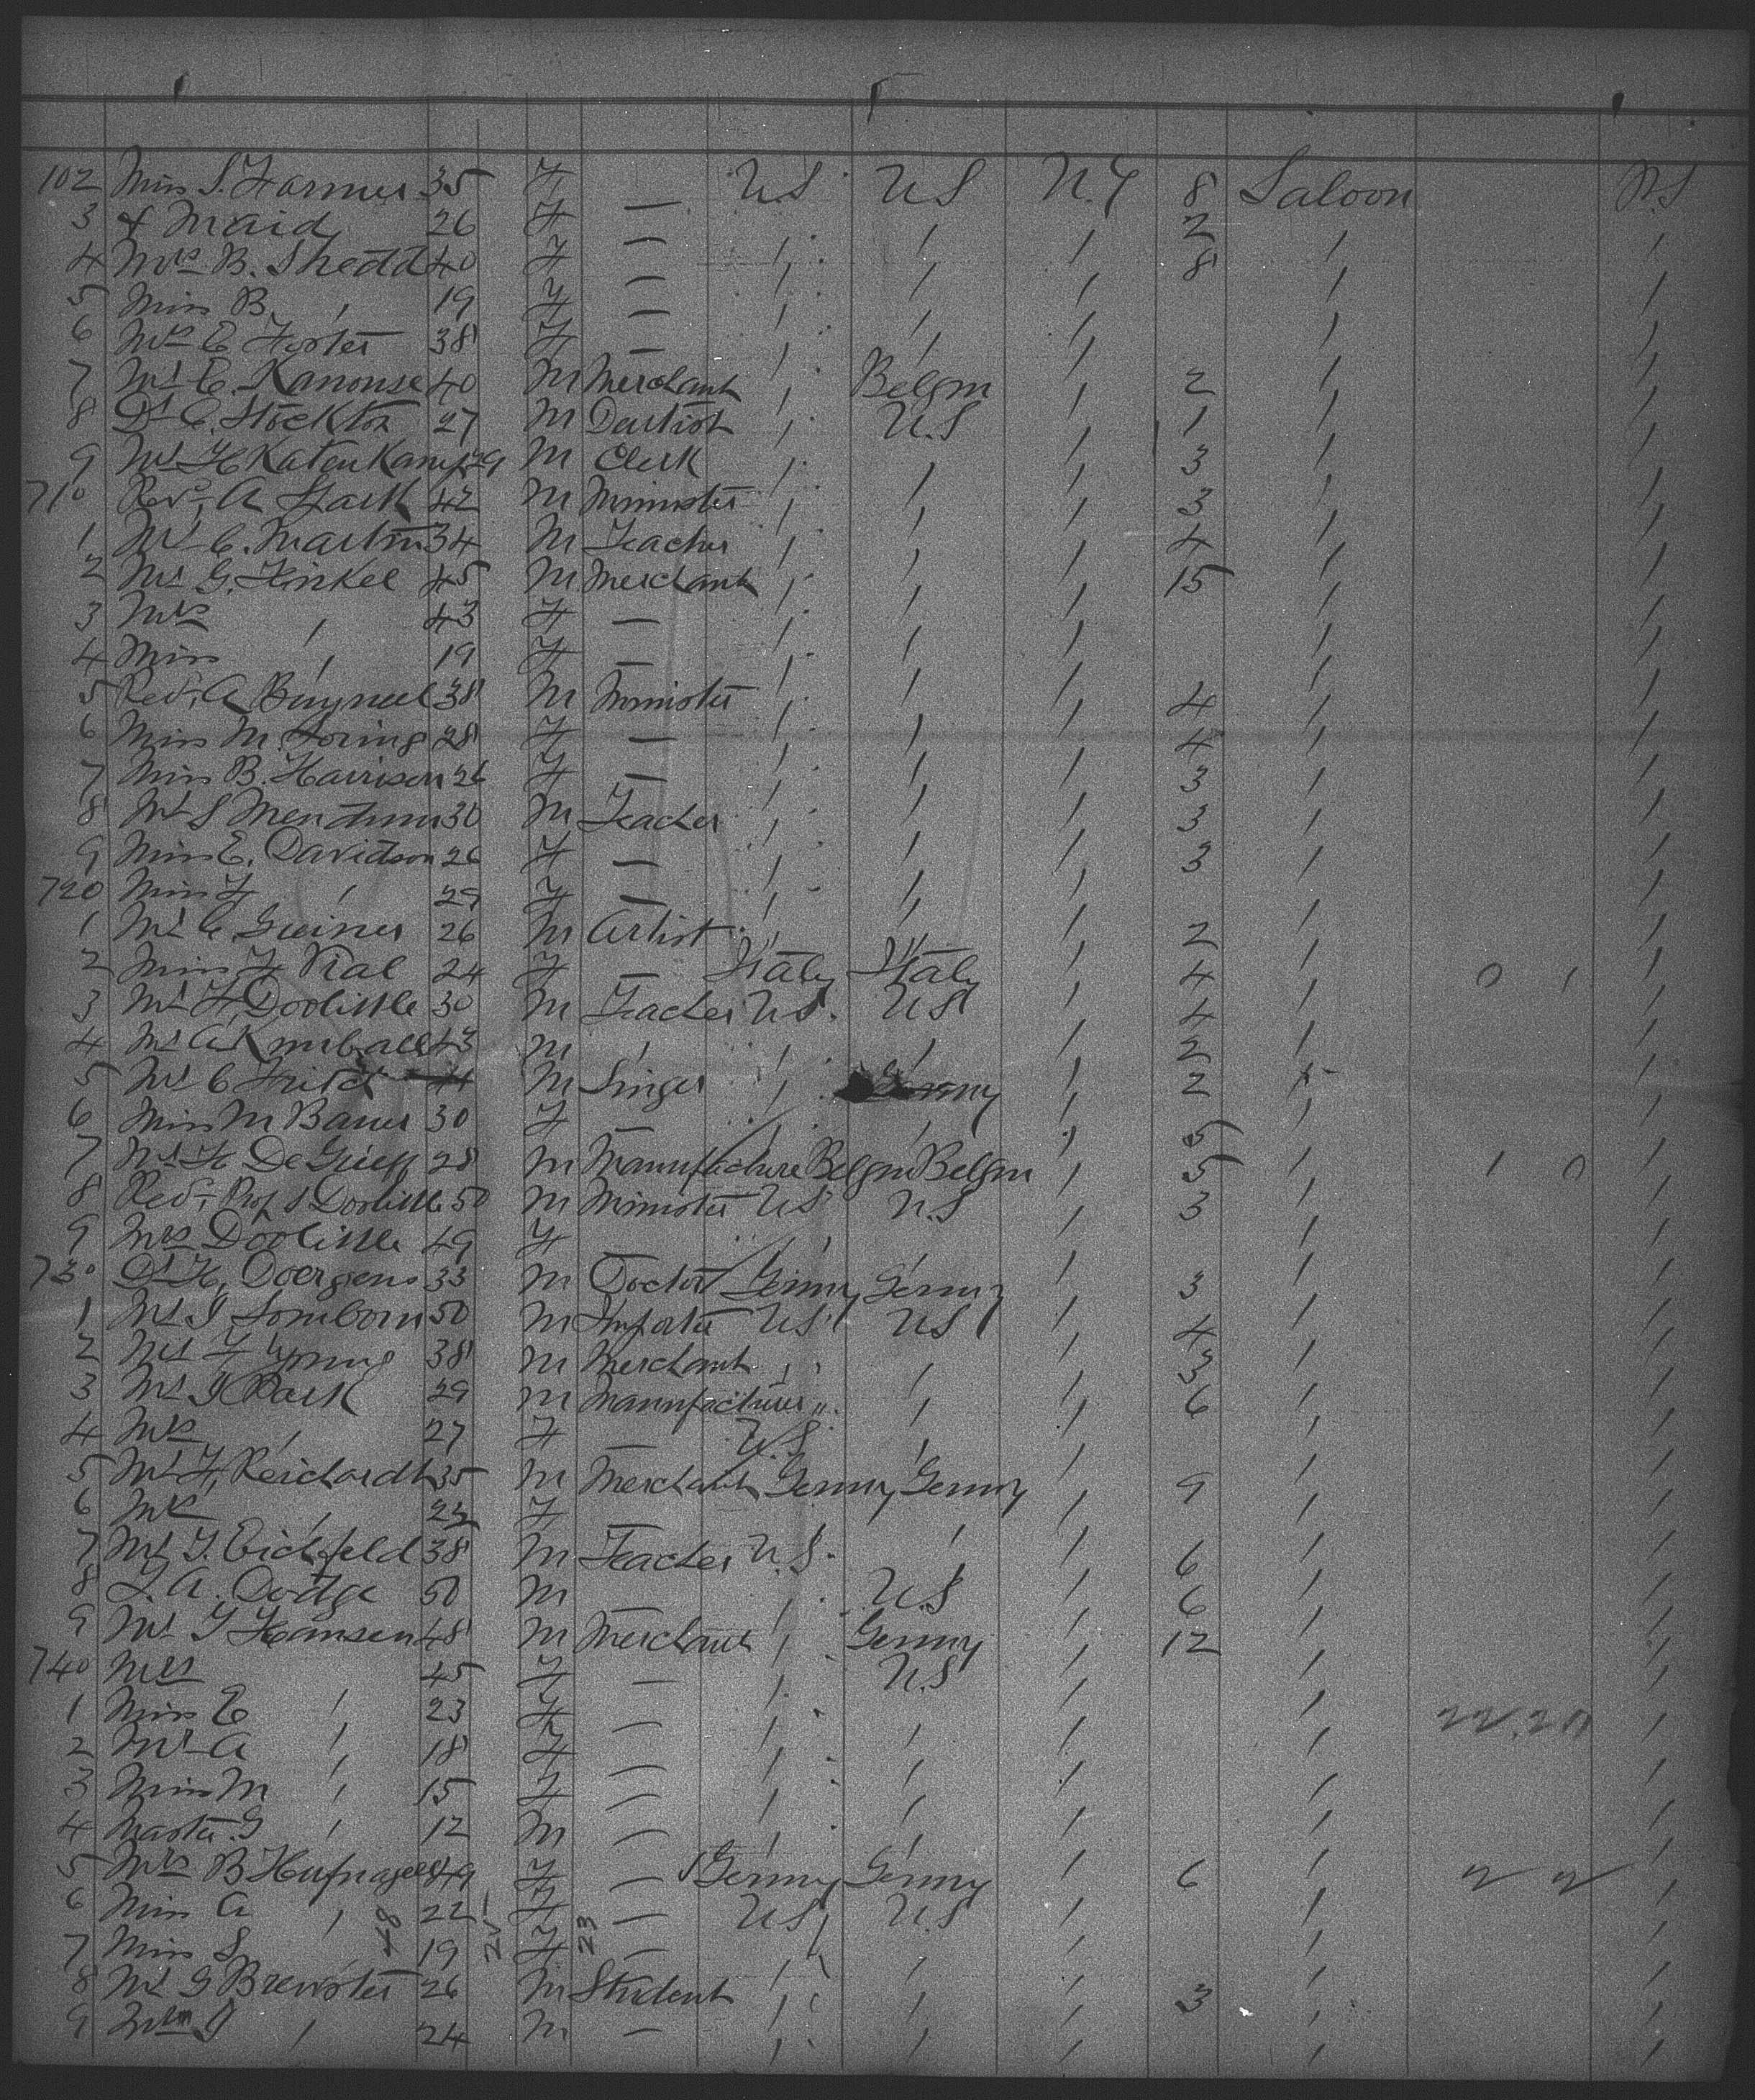 102 Miss S. Farmer 35 F — U.S U S N.Y 8 Saloon N.S
3 & Maid 26 F — , , , 2 , ,
4 Mrs B. Shedd 40 F — , , , 8 , ,
5 Miss B. , 19 F — , , , , ,
6 Mrs E Foster 38 F — , , , , ,
7 Mr E. Kanouse 40 M Merchant , Belgm , 2 , ,
8 Dr C. Stockton 27 M Dentist , U.S , 1 , ,
9 Mr H Katenkamp 29 M Clerk , , , 3 , ,
710 Revd A Stark 42 M Minister , , , 3 , ,
1 Mr C. Martin 34 M Teacher , , , 4 , ,
2 Mr G. Hinkel 45 M Merchant , , , 15 , ,
3 Mrs , 43 F — , , , , ,
4 Miss , 19 F — , , , , ,
5 Revd A 38 M Minister , , , 4 , ,
6 Miss M. Loring 28 F — , , , 4 , ,
7 Miss B. Harrison 26 F — , , , 3 , ,
8 Mr S Mendum 30 M Teacher , , , 3 , ,
9 Miss E. Davidson 26 F — , , , 3 , ,
720 Miss F , 29 F — , , , , ,
1 Mr C Greiner 26 M Artist , , , 2 , ,
2 Miss F Rial 24 F — Italy Italy , 4 , 0 1 ,
3 Mr F. Doolittle 30 M Teacher U.S. U S , 4 , ,
4 Mr A. Kimball 43 M , , , , 2 , ,
5 Mr C 41 M Singer , Germy , 2 , ,
6 Miss M Bauer 30 F — , , , 5 , ,
7 Mr H De Grieff 28 M Manufacture Belgm Belgm , 5 , 1 0 ,
8 Revd Prof S Doolittle 50 M Minister U S U.S , 3 , ,
9 Mrs Doolittle 49 F — , , , , ,
730 Dr H. Doergens 33 M Doctor Germy Germy , 3 , ,
1 Mr J Somborn 50 M Importer U S U S , 4 , ,
2 Mr F Young 38 M Merchant , , , 3 , ,
3 Mr J Park 29 M Manufacturer " , , 6 , ,
4 Mrs , 27 F — U.S , , , ,
5 Mr F. Reichardt 35 M Merchant Germy Germy , 9 , ,
6 Mrs , 22 F — , , , , ,
7 Mr J. Eichfeld 38 M Teacher U.S. , , 6 , ,
8 L. A. Dodge 50 M — , U.S , 6 , ,
9 Mr J Hansen 48 M Merchant , Germy , 12 , ,
740 Mrs 45 F — , U.S , , ,
1 Miss E , 23 F — , , , , 22.20 ,
2 Mr A , 18 F — , , , , ,
3 Miss M , 15 F — , , , , ,
4 Master G , 12 M — , , , , ,
5 Mrs B Hufnagel 49 F — Germy Germy , 6 , 2 2 ,
6 Miss A , 22 F — U S U.S , , ,
7 Miss S , 18 19 25 F 23 — , , , , ,
8 Mr G Brewster 26 M Student , , , 3 , ,
9 J , 24 M — , , , , ,